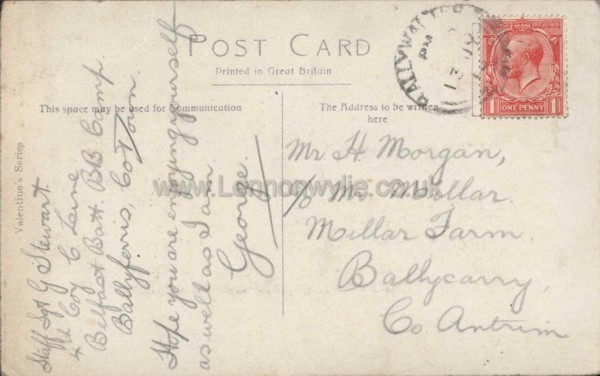 POST CARD
Printed in Great Britain
This space may be used for Communication
The Address to be written
here
Valentine's Series
Staff Sgt G Stewart
4th Coy C Larne
Belfast Batt. BB Camp.
Ballyferris, Co Down.
Hope you are enjoying yourself
as well as I am
George.
BALLYWALTER
PM
ONE PENNY
1 1
Mr H. Morgan,
c/o Mr. Millar.
Millar Farm.
Ballycarry,
Co Antrim
www.Lennonwylie.co.uk